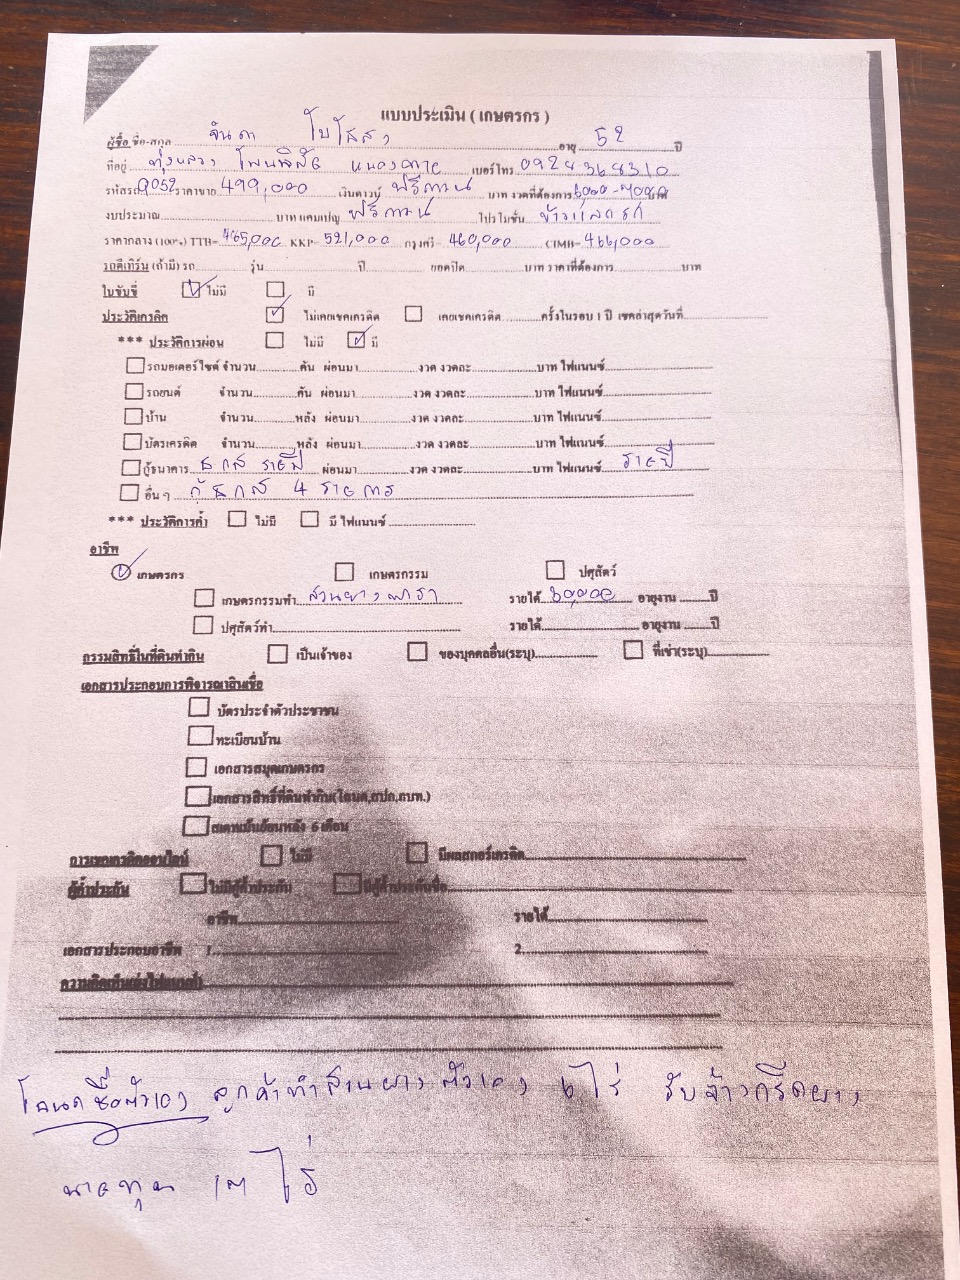 แบบประเมิน ( เกษตรกร )
ผู้ซื้อ ชื่อ-สกุล จันดา ใบโสสง อายุ 52 ปี
ที่อยู่ ทุ่งหลวง โพนพิสัย หนองคาย เบอร์โทร 0924368310
รหัสรถ 9052 ราคาขาย 499,000 เงินดาวน์ ฟรีดาวน์ บาท งวดที่ต้องการ 6000-7000 บาท
งบประมาณ บาท แคมเปญ ฟรีดาวน์ โปรโมชั่น ข้าวแลกรถ
ราคากลาง (100%) TTB= 465,000 KKP= 521,000 กรุงศรี= 460,000 CIMB= 466,000
รถตีเทิร์น (ถ้ามี) รถ รุ่น ปี ยอดปิด บาท ราคาที่ต้องการ บาท
ใบขับขี่ ไม่มี มี
ประวัติเครดิต ไม่เคยเชคเครดิต เคยเชคเครดิต ครั้งในรอบ 1 ปี เชคล่าสุดวันที่
*** ประวัติการผ่อน ไม่มี มี
รถมอเตอร์ไซค์ จำนวน คัน ผ่อนมา งวด งวดละ บาท ไฟแนนซ์
รถยนต์ จำนวน คัน ผ่อนมา งวด งวดละ บาท ไฟแนนซ์
บ้าน จำนวน หลัง ผ่อนมา งวด งวดละ บาท ไฟแนนซ์
บัตรเครดิต จำนวน หลัง ผ่อนมา งวด งวดละ บาท ไฟแนนซ์
กู้ธนาคาร ธกส รายปี ผ่อนมา งวด งวดละ บาท ไฟแนนซ์ รายปี
อื่น ๆ กู้ธกส 4 รายการ
*** ประวัติการค้ำ ไม่มี มี ไฟแนนซ์
อาชีพ
เกษตรกร เกษตรกรรม ปศุสัตว์
เกษตรกรรมทำ สวนยางพารา รายได้ อายุงาน ปี
ปศุสัตว์ทำ รายได้ อายุงาน ปี
กรรมสิทธิ์ในที่ดินทำกิน เป็นเจ้าของ ของบุคคลอื่น(ระบุ) ที่เช่า(ระบุ)
เอกสารประกอบการพิจารณาสินเชื่อ
บัตรประจำตัวประชาชน
ทะเบียนบ้าน
เอกสารสมุดเกษตรกร
เอกสารสิทธิ์ที่ดินทำกิน(โฉนด,สปก,ภบท.)
สเตทเม้นย้อนหลัง 6 เดือน
ไม่มี มีผลสกอร์เครดิต
ผู้ค้ำประกัน ไม่มีผู้ค้ำประกัน มีผู้ค้ำประกันชื่อ
อาชีพ รายได้
เอกสารประกอบอาชีพ 1. 2.
โฉนดชื่อตัวเอง ลูกค้าทำสวนยางตัวเอง 6 ไร่ รับจ้างกรีดยาง
นายทุน 17 ไร่